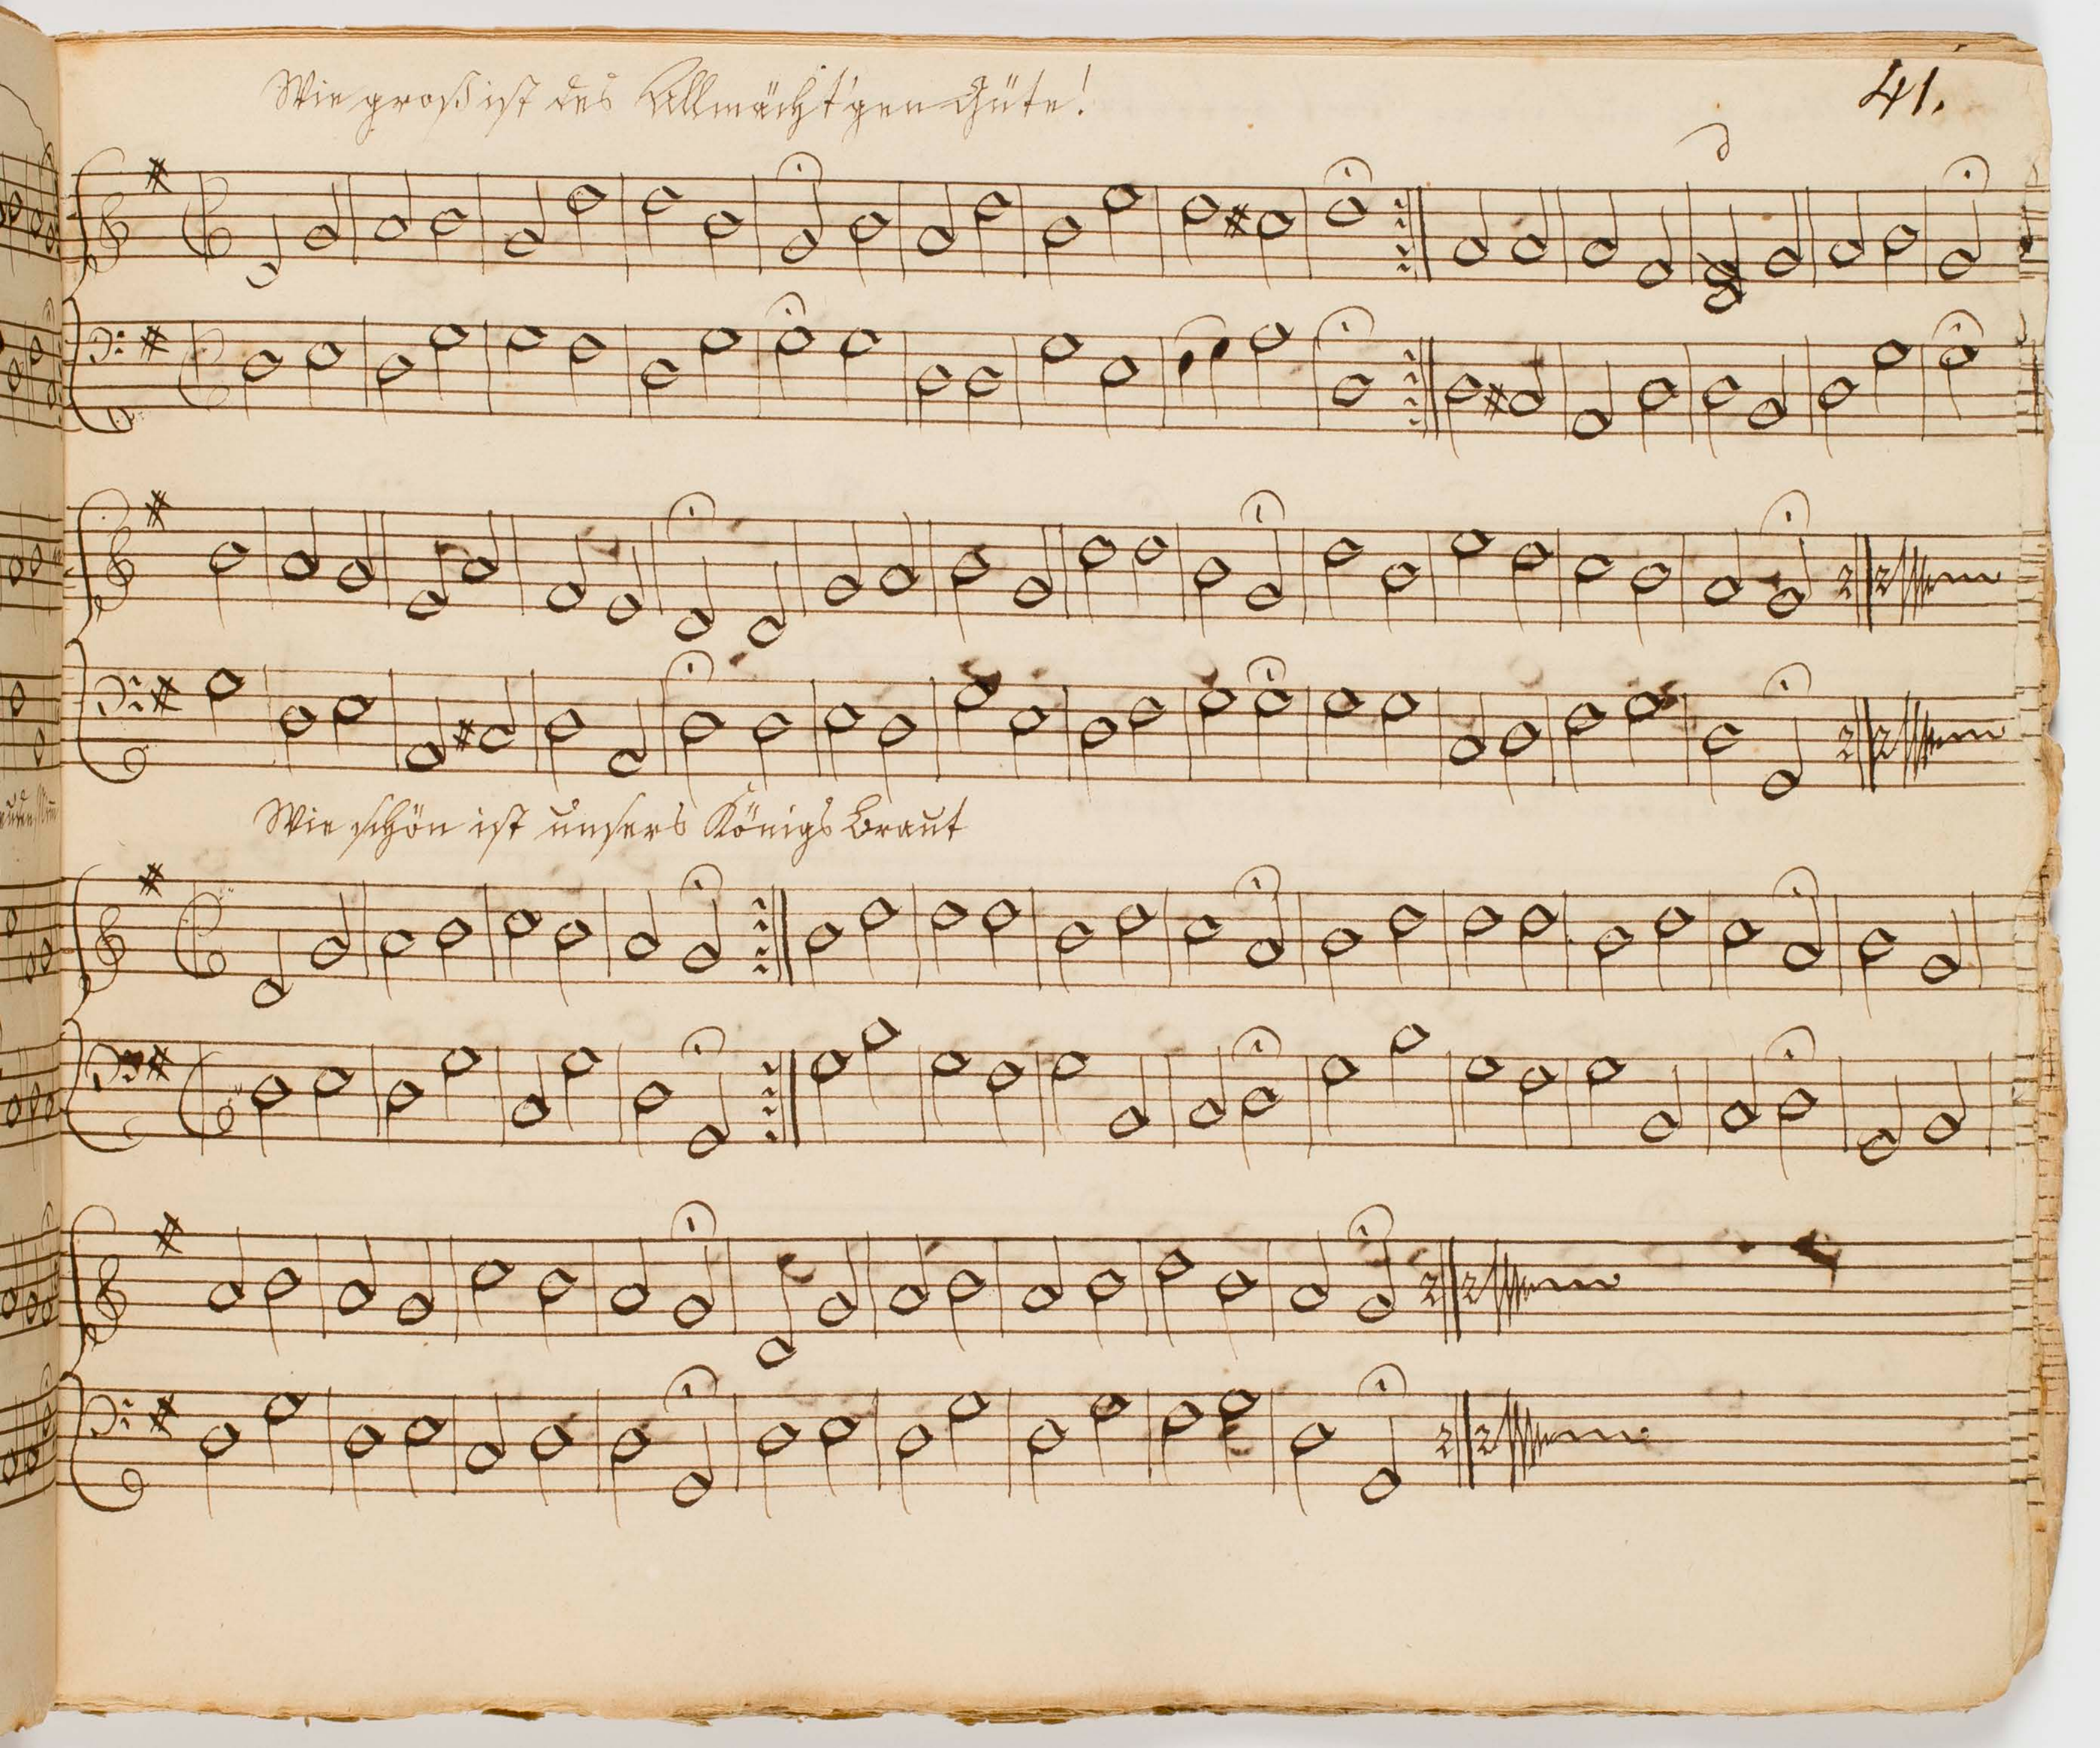 Wie groß ist des Allmächt'gen Güte!
41.
Wie schön ist unsers Königs Braut